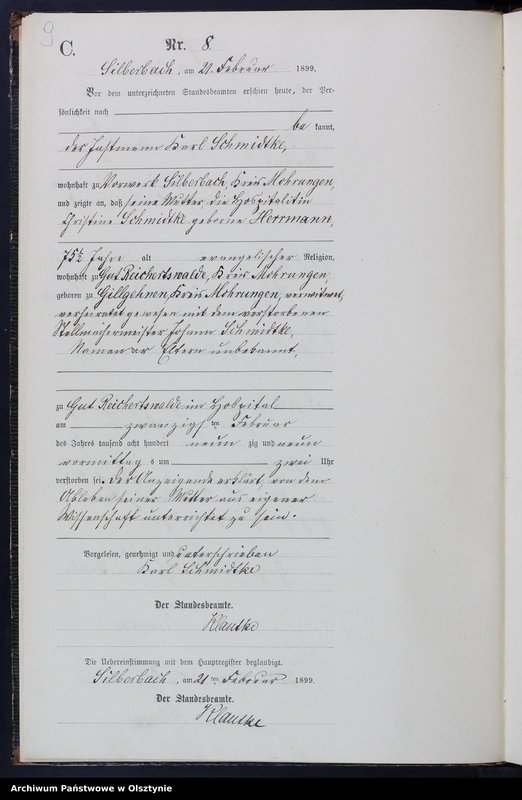 9
C.
Nr. 8
Silberbach, am 21. Februar 1899.
Vor dem unterzeichneten Standesbeamten erschien heute, der Per-
sönlichkeit nach
be kannt,
der Instmann Karl Schmidtke,
wohnhaft zu Vorwerk Silberbach, Kreis Mohrungen,
und zeigte an, daß seine Mutter die Hospitalitin
Christine Schmidtke geborne Herrmann,
75½ Jahre alt evangelischer Religion,
wohnhaft zu Gut Reichertswalde, Kreis Mohrungen,
geboren zu Gillgehnen, Kreis Mohrungen, verwitwet,
verheiratet gewesen mit dem verstorbenen
Stellmachermeister Johann Schmidtke,
Namen der Eltern unbekannt,
zu Gut Reichertswalde im Hospital
am zwanzigs ten Februar
des Jahres tausend acht hundert neun zig und neun
vormittag s um zwei Uhr
verstorben sei. Der Anzeigende erklärt von dem
Ableben seiner Mutter aus eigener
Wissenschaft unterrichtet zu sein.
Vorgelesen, genehmigt und unterschrieben
Karl Schmidtke
Der Standesbeamte.
Klautke
Die Uebereinstimmung mit dem Hauptregister beglaubigt.
Silberbach, am 21 ten Februar 1899.
Der Standesbeamte.
Klautke
Archiwum Państwowe w Olsztynie